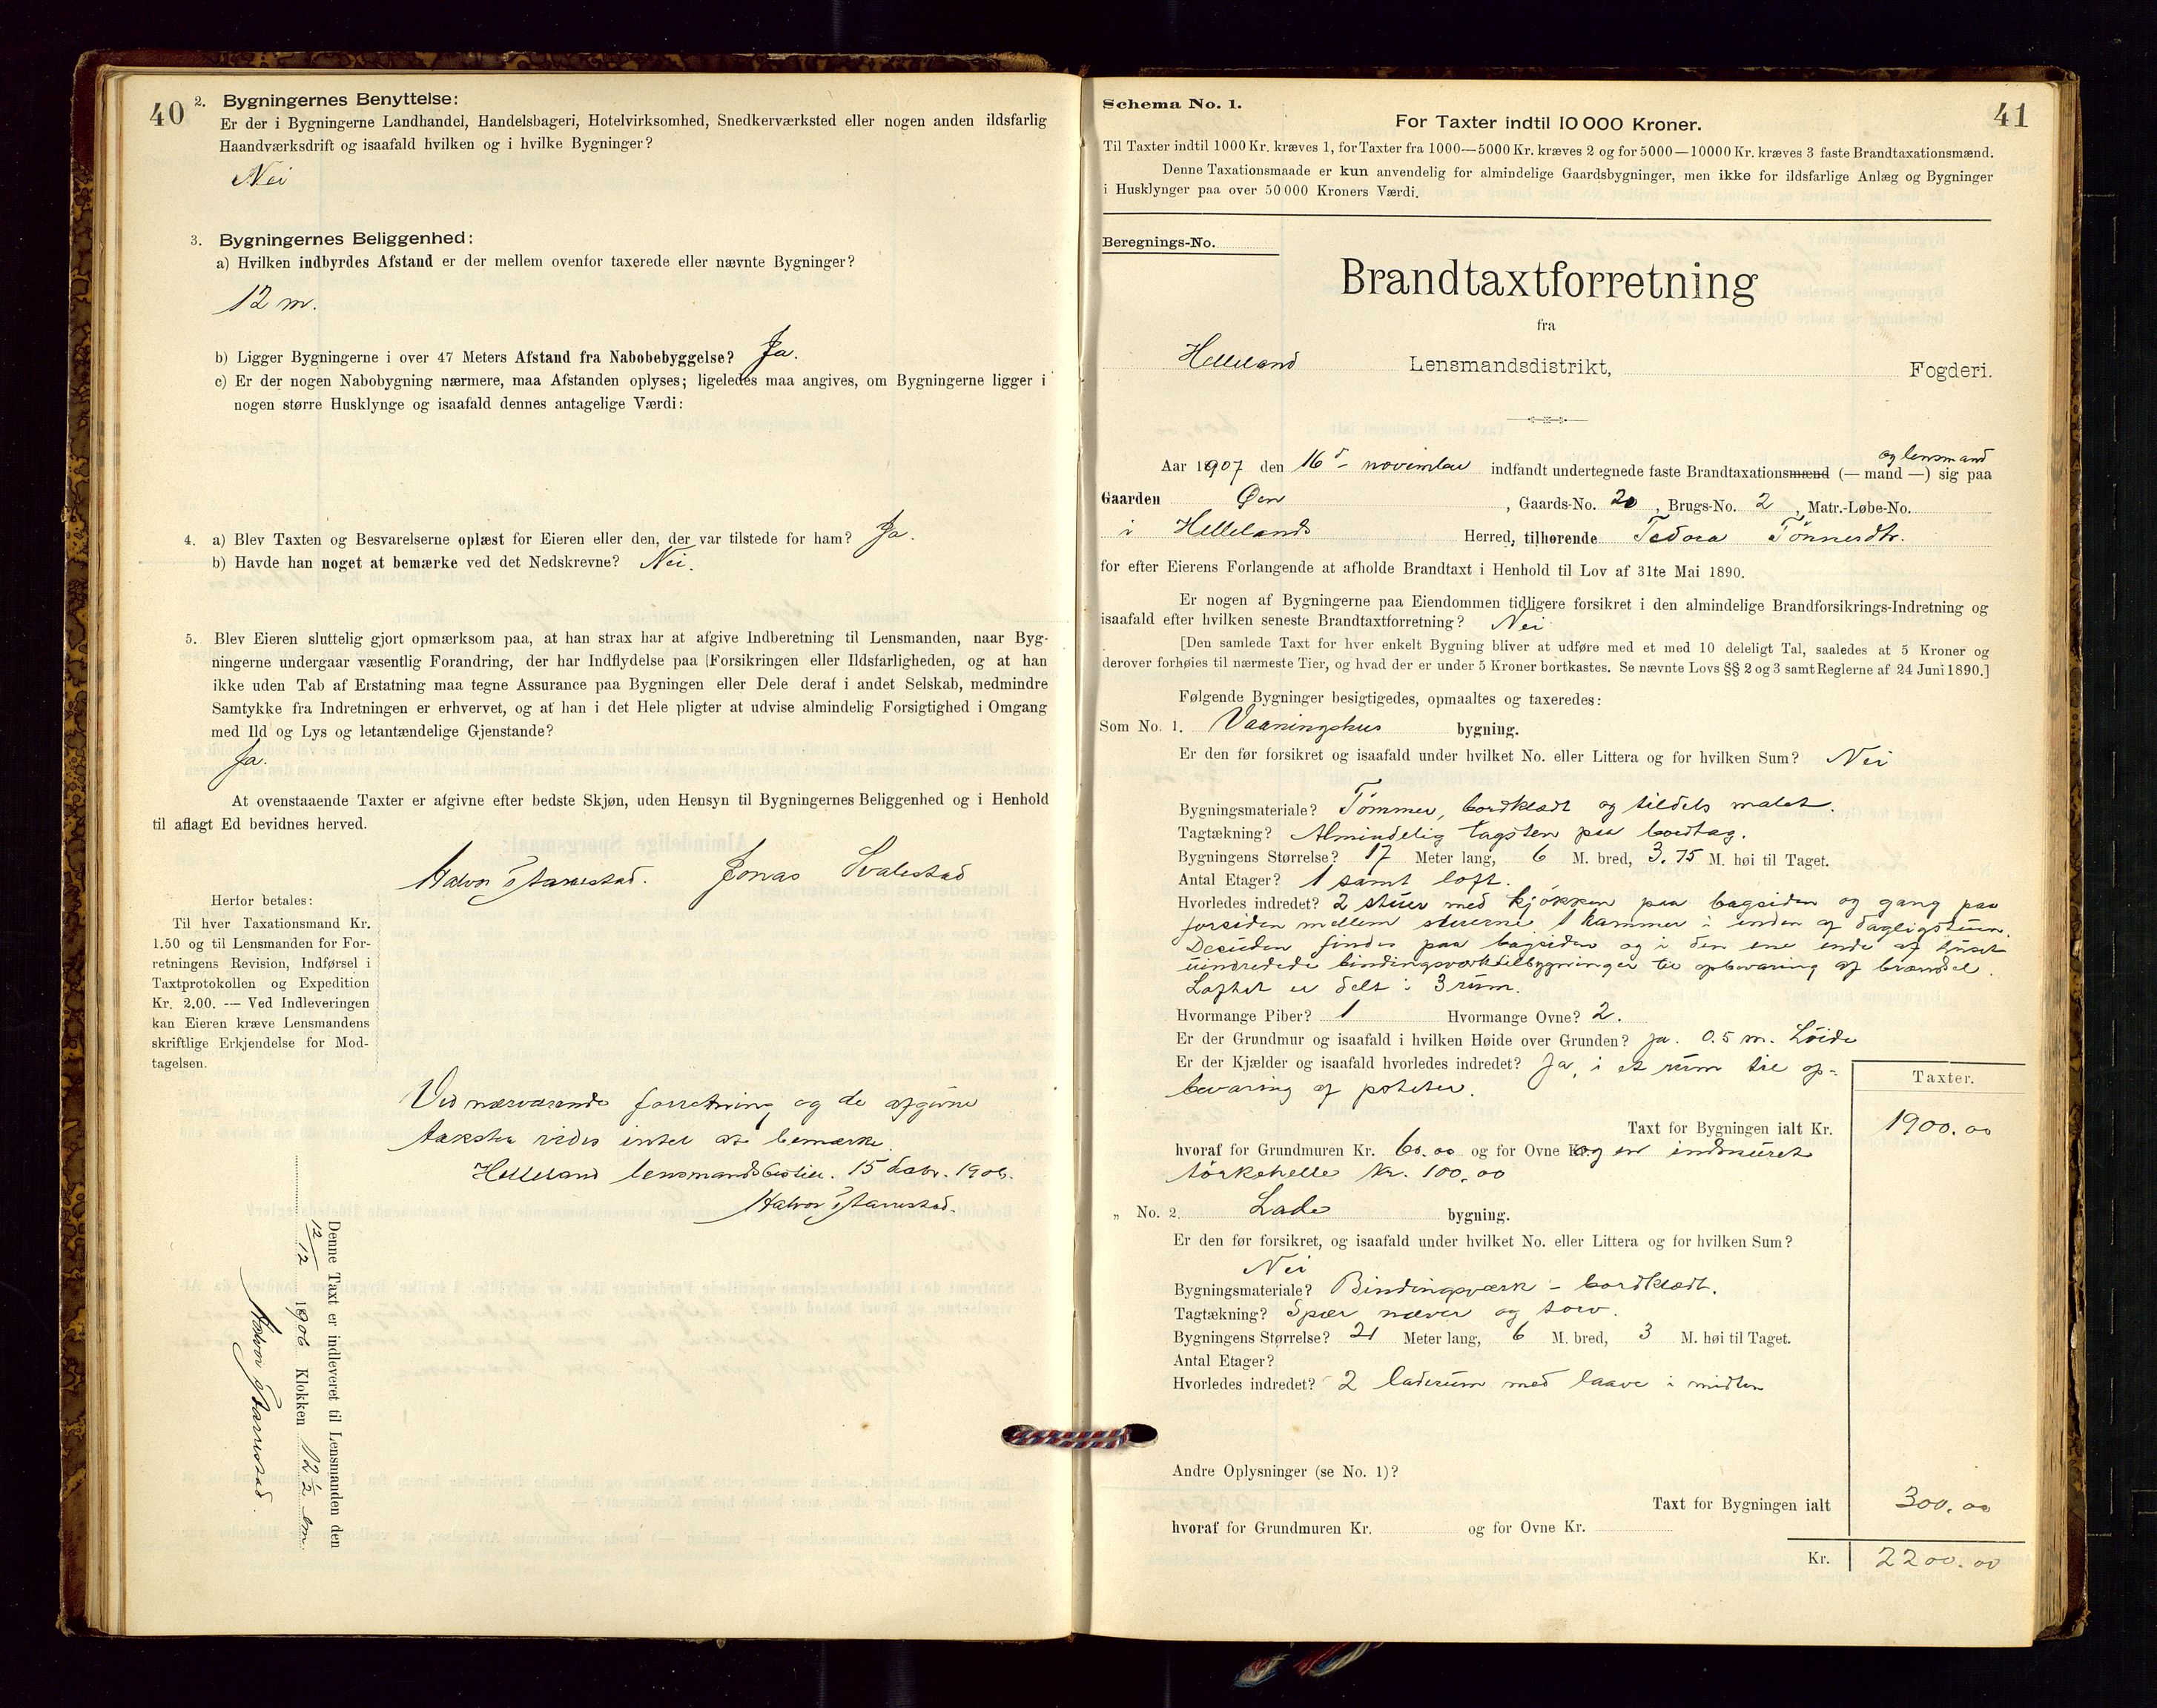 40
2. Bygningernes Benyttelse:
Er der i Bygningerne Landhandel, Handelsbageri, Hotelvirksomhed, Snedkerværksted eller nogen anden ildsfarlig
Haandværksdrift og isaafald hvilken og i hvilke Bygninger?
Nei
3. Bygningernes Beliggenhed:
a) Hvilken indbyrdes Afstand er der mellem ovenfor taxerede eller nævnte Bygninger?
12 m.
b) Ligger Bygningerne i over 47 Meters Afstand fra Nabobebyggelse? Ja.
c) Er der nogen Nabobygning nærmere, maa Afstanden oplyses; ligeledes maa angives, om Bygningerne ligger i
nogen større Husklynge og isaafald dennes antagelige Værdi:
4. a) Blev Taxten og Besvarelserne oplæst for Eieren eller den, der var tilstede for ham? Ja.
b) Havde han noget at bemærke ved det Nedskrevne? Nei.
5. Blev Eieren sluttelig gjort opmærksom paa, at han strax har at afgive Indberetning til Lensmanden, naar Byg-
ningerne undergaar væsentlig Forandring, der har Indflydelse paa [Forsikringen eller Ildsfarligheden, og at han
ikke uden Tab af Erstatning maa tegne Assurance paa Bygningen eller Dele deraf i andet Selskab, medmindre
Samtykke fra Indretningen er erhvervet, og at han i det Hele pligter at udvise almindelig Forsigtighed i Omgang
med Ild og Lys og letantændelige Gjenstande?
Ja.
At ovenstaaende Taxter er afgivne efter bedste Skjøn, uden Hensyn til Bygningernes Beliggenhed og i Henhold
til aflagt Ed bevidnes herved.
Halvor Starrestad. Jonas Svalestad
Herfor betales:
Til hver Taxationsmand Kr.
1.50 og til Lensmanden for For-
retningens Revision, Indførsel i
Taxtprotokollen og Expedition
Kr. 2.00. — Ved Indleveringen
kan Eieren kræve Lensmandens
skriftlige Erkjendelse for Mod-
tagelsen.
Ved nærværende forretning og de afgivne
takster vides intet at bemærke.
Helleland lensmandsbestill. 15 debr. 1906.
Halvor Starrestad.
Denne Taxt er indleveret til Lensmanden den
12/12 1906 Klokken 12 1/2 em.
Halvor Starrestad.
41
Schema No. 1.
For Taxter indtil 10 000 Kroner.
Til Taxter indtil 1000 Kr. kræves 1, for Taxter fra 1000—5000 Kr. kræves 2 og for 5000—10000 Kr. kræves 3 faste Brandtaxationsmænd.
Denne Taxationsmaade er kun anvendelig for almindelige Gaardsbygninger, men ikke for ildsfarlige Anlæg og Bygninger
i Husklynger paa over 50 000 Kroners Værdi.
Beregnings-No.
Brandtaxtforretning
fra
Helleland Lensmandsdistrikt, Fogderi.
og lensmand
Aar 1907 den 16d november indfandt undertegnede faste Brandtaxationsmænd (— mand —) sig paa
Gaarden Øen , Gaards-No. 20 , Brugs-No. 2 , Matr.-Løbe-No.
i Hellelands Herred, tilhørende Tedora Tønnesdtr.
for efter Eierens Forlangende at afholde Brandtaxt i Henhold til Lov af 31te Mai 1890.
Er nogen af Bygningerne paa Eiendommen tidligere forsikret i den almindelige Brandforsikrings-Indretning og
isaafald efter hvilken seneste Brandtaxtforretning? Nei
[Den samlede Taxt for hver enkelt Bygning bliver at udføre med et med 10 deleligt Tal, saaledes at 5 Kroner og
derover forhøies til nærmeste Tier, og hvad der er under 5 Kroner bortkastes. Se nævnte Lovs §§ 2 og 3 samt Reglerne af 24 Juni 1890.]
Følgende Bygninger besigtigedes, opmaaltes og taxeredes:
Som No. 1. Vaaningshus bygning.
Er den før forsikret og isaafald under hvilket No. eller Littera og for hvilken Sum? Nei
Bygningsmateriale? Tømmer, bordklædt og tildels malet.
Tagtækning? Almindelig tagsten paa bordtag.
Bygningens Størrelse? 17 Meter lang, 6 M. bred, 3.75 M. høi til Taget.
Antal Etager? 1 samt loft.
Hvorledes indredet? 2 stuer med kjøkken paa bagsiden og gang paa
forsiden mellem stuerne 1 kammer i enden af dagligstuen.
Desuden findes paa bagsiden og i den ene ende af huset
uindredede bindingsværktilbygninger til opbevaring af brændsel.
Loftet er delt i 3 rum.
Hvormange Piber? 1 Hvormange Ovne? 2.
Er der Grundmur og isaafald i hvilken Høide over Grunden? ja. 0.5 m. høide
Er der Kjælder og isaafald hvorledes indredet? Ja, i et rum til op-
bevaring af poteter.
Taxter.
Taxt for Bygningen ialt Kr. 1900.00
hvoraf for Grundmuren Kr. 60.00 og for Ovne Kr. og en indmuret
tørkehelle kr. 100,00
„ No. 2. Lade bygning.
Er den før forsikret, og isaafald under hvilket No. eller Littera og for hvilken Sum?
Nei
Bygningsmateriale? Bindingsværk - bordklædt.
Tagtækning? Spær næver og torv.
Bygningens Størrelse? 21 Meter lang, 6 M. bred, 3 M. høi til Taget.
Antal Etager?
Hvorledes indredet? 2 laderum med laave i midten
Andre Oplysninger (se No. 1)?
Taxt for Bygningen ialt 300.00
hvoraf for Grundmuren Kr. og for Ovne Kr.
Kr. 2200.00